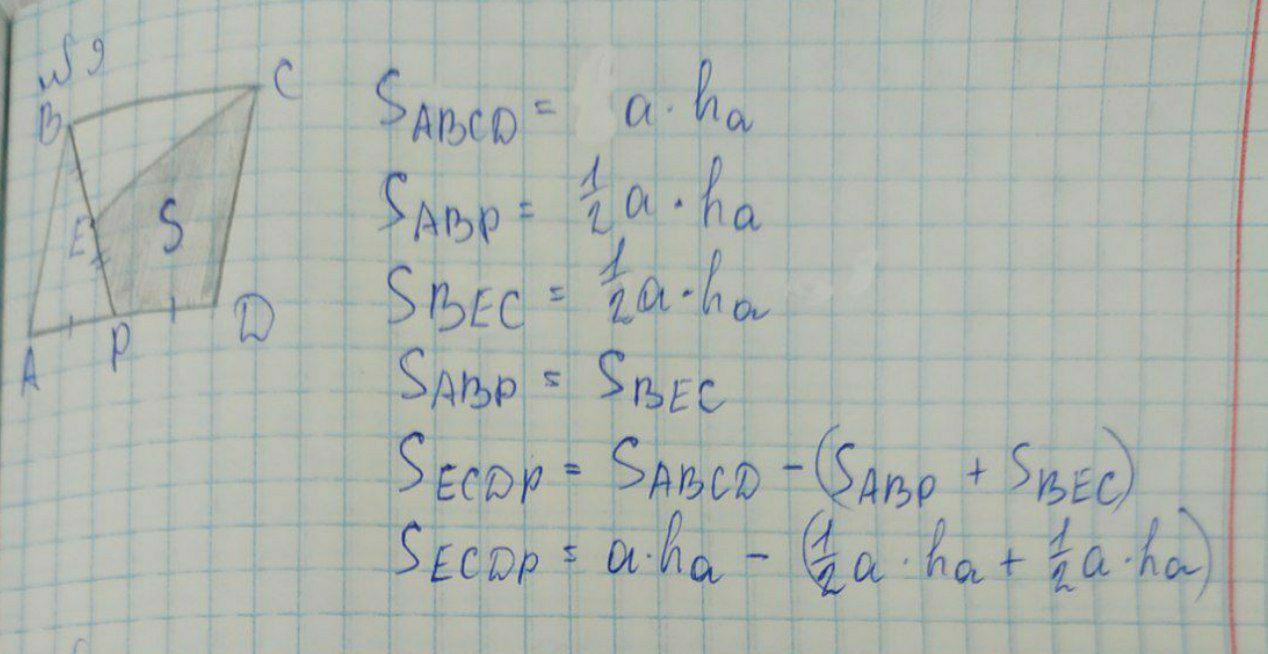 №9
B
C
E
S
A
P
D
S_ABCD = a · h_a
S_ABP = 1/2 a · h_a
S_BEC = 1/2 a · h_a
S_ABP = S_BEC
S_ECDP = S_ABCD - (S_ABP + S_BEC)
S_ECDP = a · h_a - (1/2 a · h_a + 1/2 a · h_a)